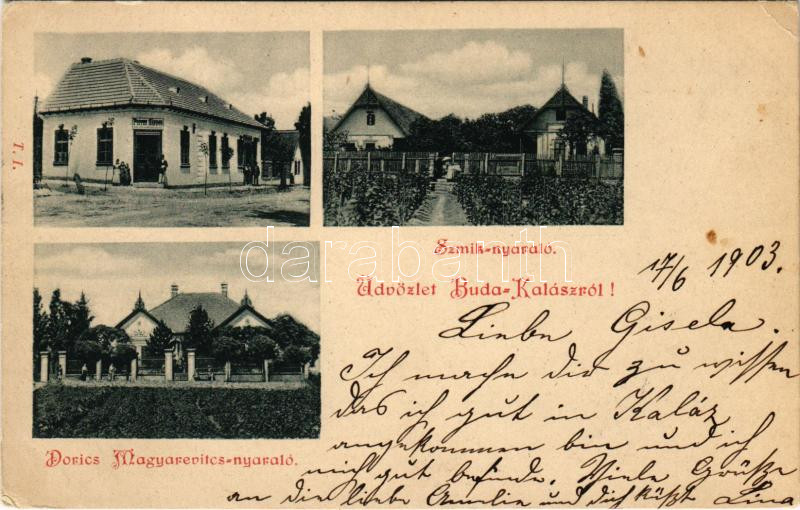 T. I.
Szmik-nyaraló.
Üdvözlet Buda-Kalászról!
Dorics Magyarevits-nyaraló.
darabanth
17/6 1903.
Liebe Gisela.
Ich mache dir zu wissen
das ich gut in Kaláz
angekommen bin und ich
mich gut befinde. Viele Grüße
an die liebe Amelie und dich küßt Lina